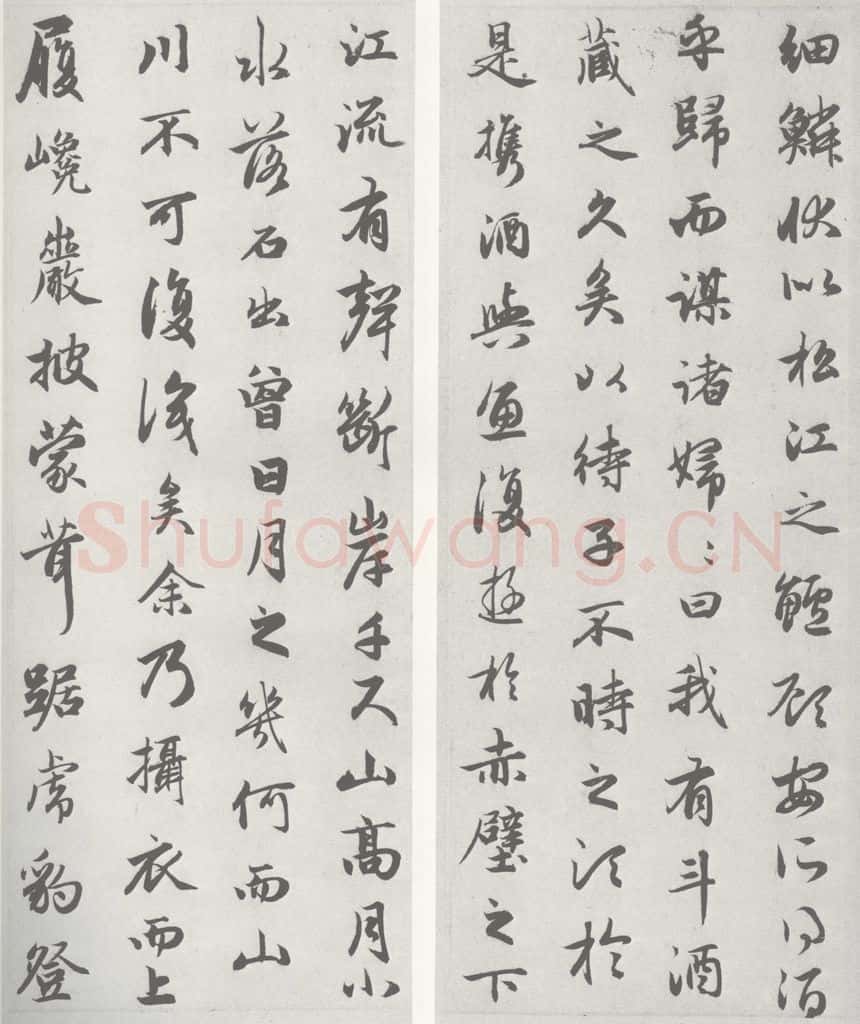 細鱗狀似松江之鱸顧安所得酒
乎歸而謀諸婦〻曰我有斗酒
藏之久矣以待子不時之須於
是攜酒與魚復遊於赤壁之下
江流有聲斷岸千尺山高月小
水落石出曾日月之幾何而山
川不可復識矣余乃攝衣而上
履巉巖披蒙茸踞虎豹登
Shufawang.CN